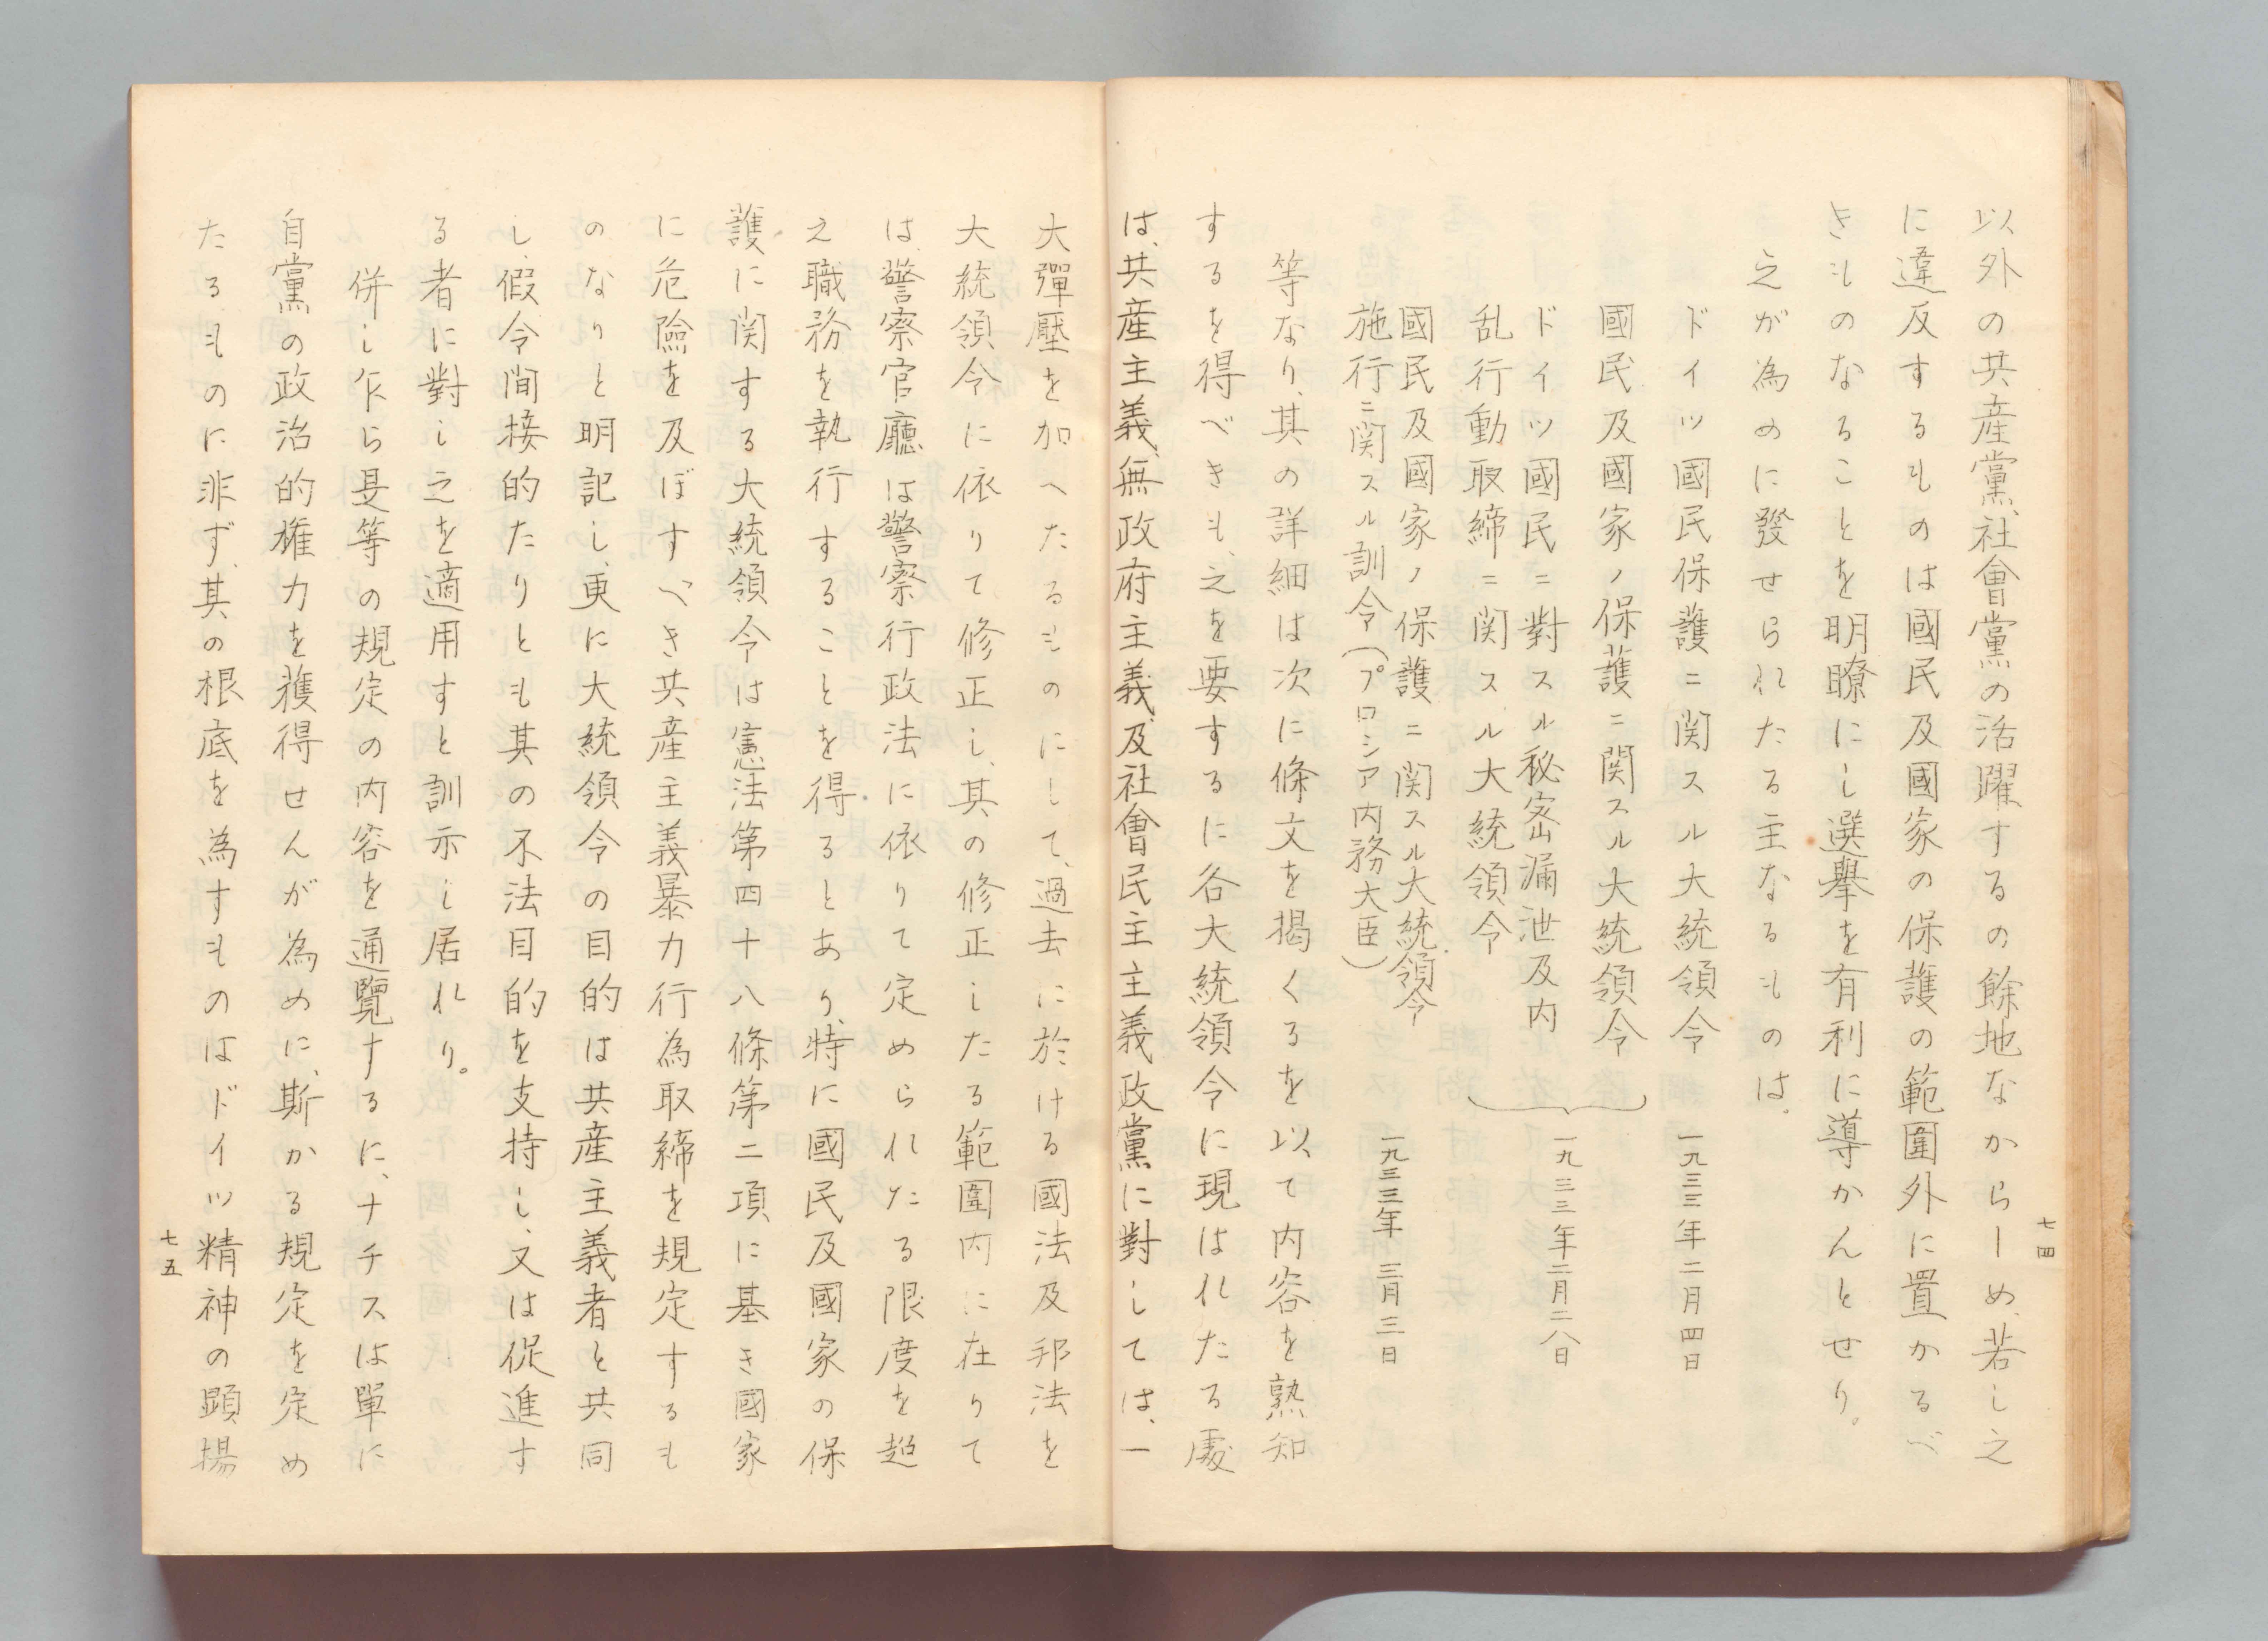 七四
以外の共産黨、社會黨の活躍するの餘地なからしめ、若し之
に違反するものは國民及國家の保護の範圍外に置かるべ
きものなることを明瞭にし選擧を有利に導かんとせり。
之が為めに發せられたる主なるものは。
ドイツ國民保護ニ関スル大統領令 一九三三年二月四日
國民及國家ノ保護ニ関スル大統領令
ドイツ國民ニ對スル秘密漏泄及内
乱行動取締ニ関スル大統領令
一九三三年二月二八日
國民及國家ノ保護ニ関スル大統領令
施行ニ関スル訓令(プロシア内務大臣)
一九三三年三月三日
等なり、其の詳細は次に條文を掲くるを以て内容を熟知
するを得べきも、之を要するに各大統領令に現はれたる處
は、共産主義、無政府主義、及社會民主主義政黨に對しては、一
大彈壓を加へたるものにして、過去に於ける國法及邦法を
大統領令に依りて修正し、其の修正したる範圍内に在りて
は、警察官廳は警察行政法に依りて定められたる限度を超
え職務を執行することを得るとあり、特に國民及國家の保
護に関する大統領令は憲法第四十八條第二項に基き國家
に危險を及ぼすべき共産主義暴力行為取締を規定するも
のなりと明記し、更に大統領令の目的は共産主義者と共同
し、假令間接的たりとも其の不法目的を支持し、又は促進す
る者に對し之を適用すと訓示し居れり。
併し乍ら是等の規定の内容を通覽するに、ナチスは單に
自黨の政治的権力を獲得せんが為めに、斯かる規定を定め
たるものに非ず、其の根底を為すものはドイツ精神の顕揚
七五